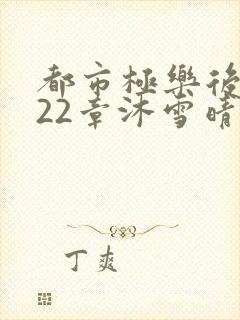 都市極樂後
22章沐雪晴
丁爽